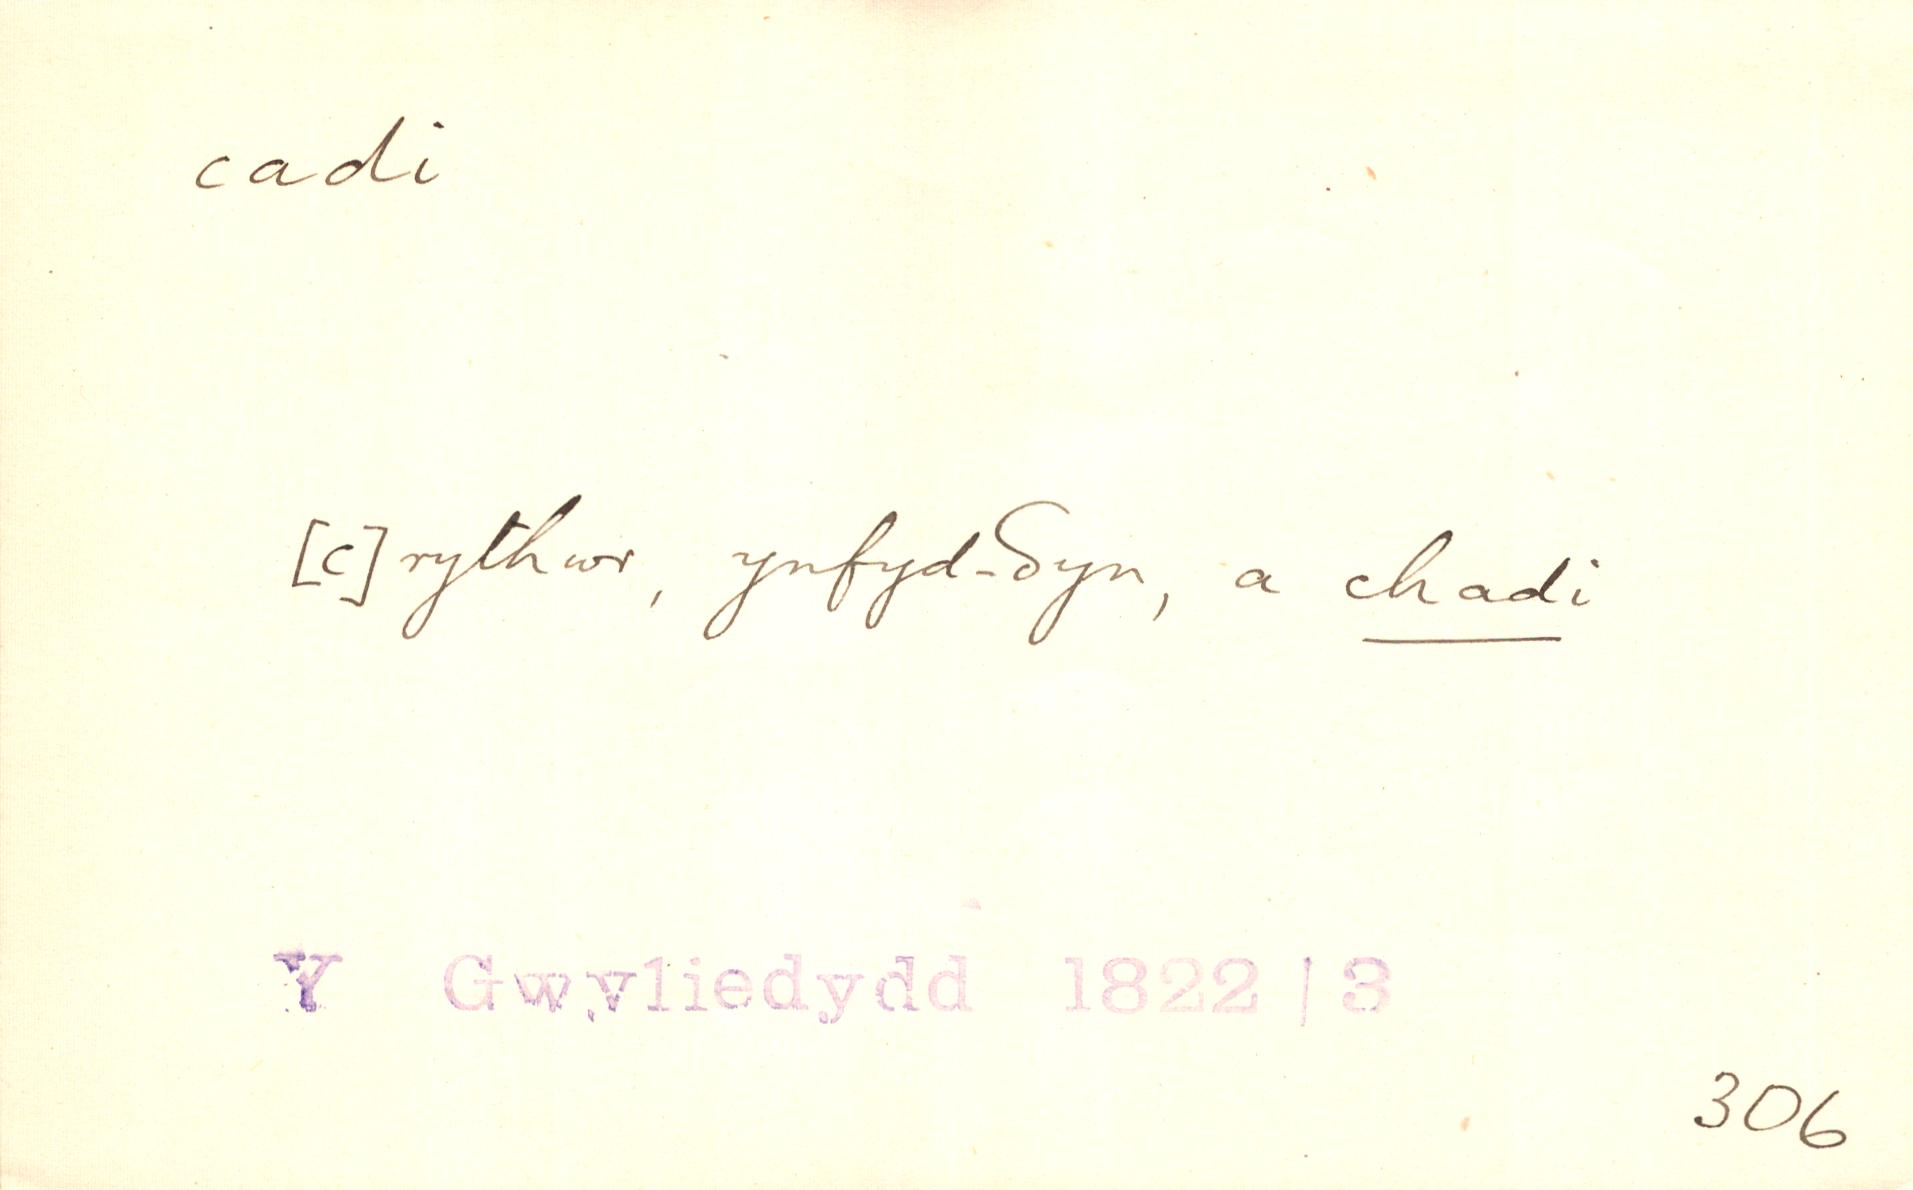 cadi
[c]rythwr, ynfyd-δyn, a chadi
Y Gwyliedydd 1822/3
306